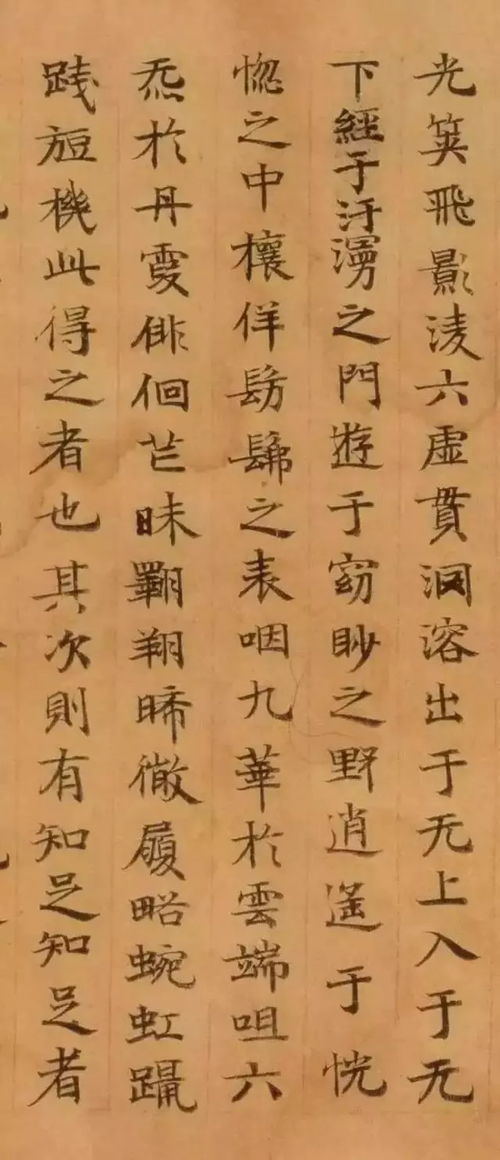 光筴飛影淩六虛貫洞溶出于无上入于无
下經于汗漫之門遊于窈眇之野逍遙于恍
惚之中欀佯髣髴之表咽九華於雲端咀六
炁於丹霞俳佪芒昧翱翔晞微履略蜿虹躡
踐旋機此得之者也其次則有知足知足者